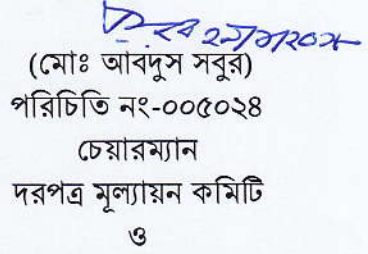 (মোঃ আবদুস সবুর)
পরিচিতি নং-০০৫০২৪
চেয়ারম্যান
দরপত্র মূল্যায়ন কমিটি
ও